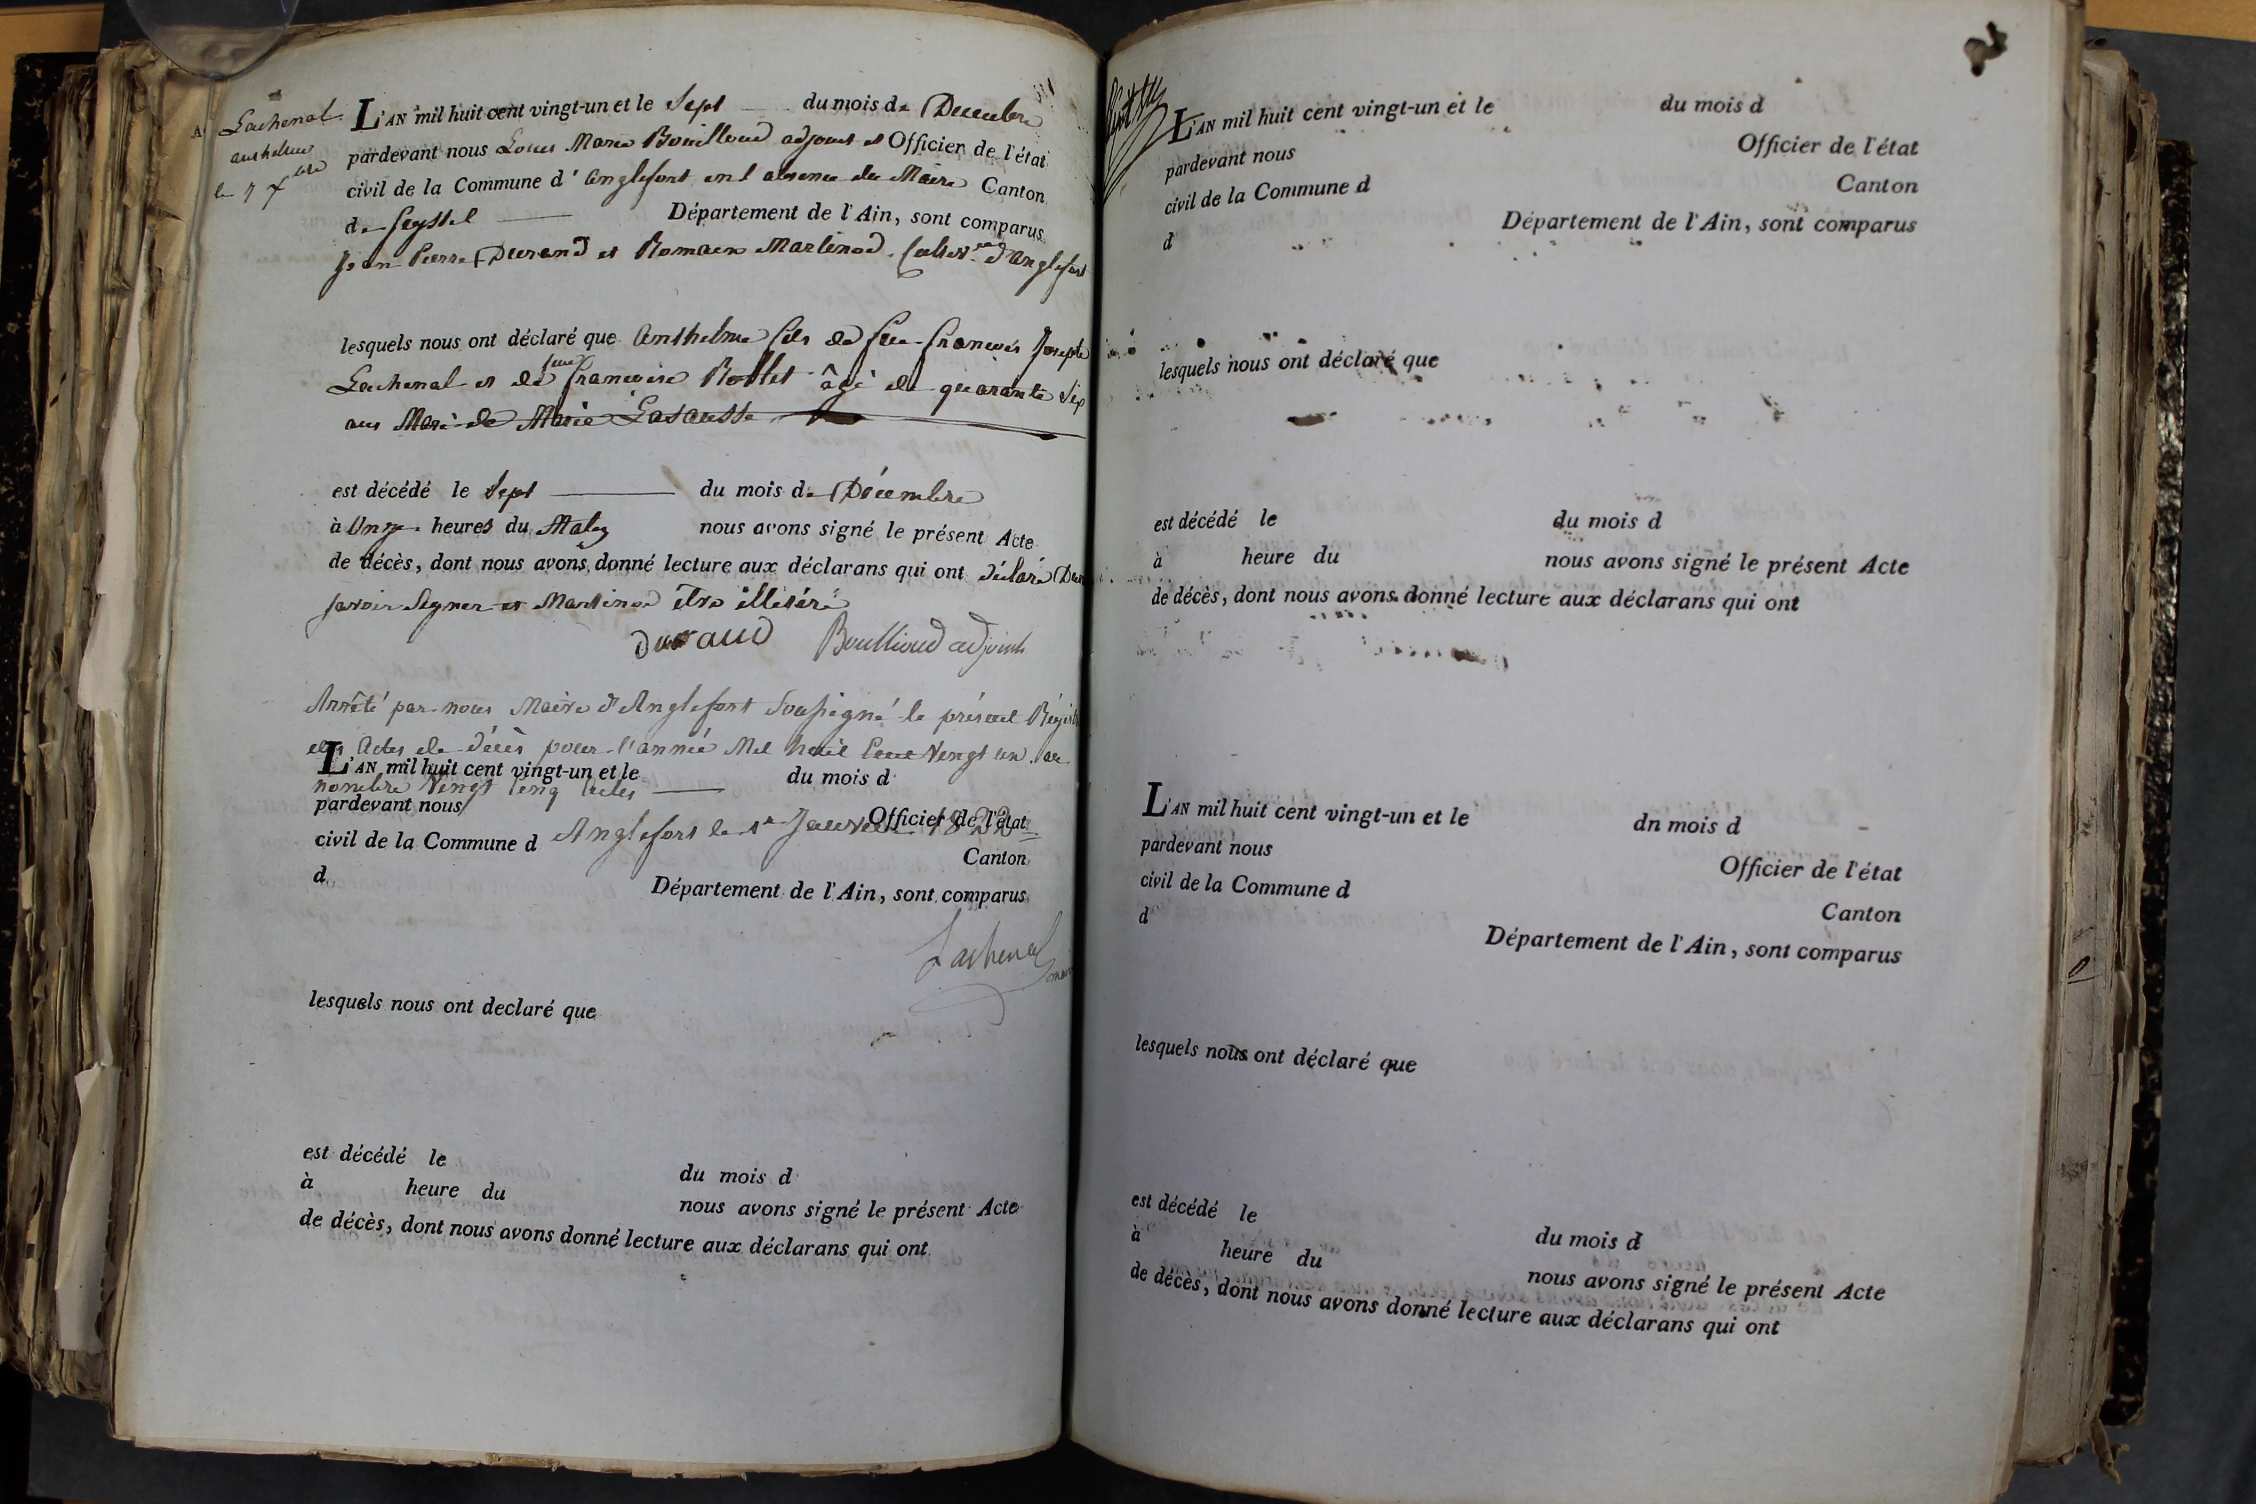 Lachenal
anthelme
le 7 Xbre
L'AN mil huit cent vingt-un et le Sept du mois de Decembre
pardevant nous Louis Marie Bouilloud adjoint et Officier de l'état
civil de la Commune d'anglefort en l absence du Maire Canton
de Seyssel Département de l'Ain, sont comparus
Jean Pierre Durand et Romain Martinod Cultivrs d'anglefort
lesquels nous ont déclaré que Anthelme fils de feu francois Joseph
Lachenal et de feue francoise Rollet âgé de quarante Six
ans Mari de Marie Lasausse
est décédé le Sept du mois de Décembre
à Onze heures du Matin nous avons signé le présent Acte
de décès, dont nous avons donné lecture aux déclarans qui ont déclaré Durand
savoir Signer et Martinod être illitéré
durand Bouilloud adjoint
Arrêté par nous Maire d'Anglefort Soussigné le présent Régistre
des Actes de décès pour l'année Mil huit Cent Vingt un au
L'AN mil huit cent vingt-un et le du mois d
nombre Vingt Cinq actes
pardevant nous Officier de l'état
civil de la Commune d Anglefort le 1er Janvier 1822
Canton
d Département de l'Ain, sont comparus
Lachenal maire
lesquels nous ont declaré que
est décédé le du mois d
à heure du nous avons signé le présent Acte
de décès, dont nous avons donné lecture aux déclarans qui ont
L'AN mil huit cent vingt-un et le du mois d
pardevant nous Officier de l'état
civil de la Commune d Canton
d Département de l'Ain, sont comparus
lesquels nous ont déclaré que
est décédé le du mois d
à heure du nous avons signé le présent Acte
de décès, dont nous avons donné lecture aux déclarans qui ont
L'AN mil huit cent vingt-un et le dn mois d
pardevant nous Officier de l'état
civil de la Commune d Canton
d Département de l'Ain, sont comparus
lesquels nous ont déclaré que
est décédé le du mois d
à heure du nous avons signé le présent Acte
de décès, dont nous avons donné lecture aux déclarans qui ont